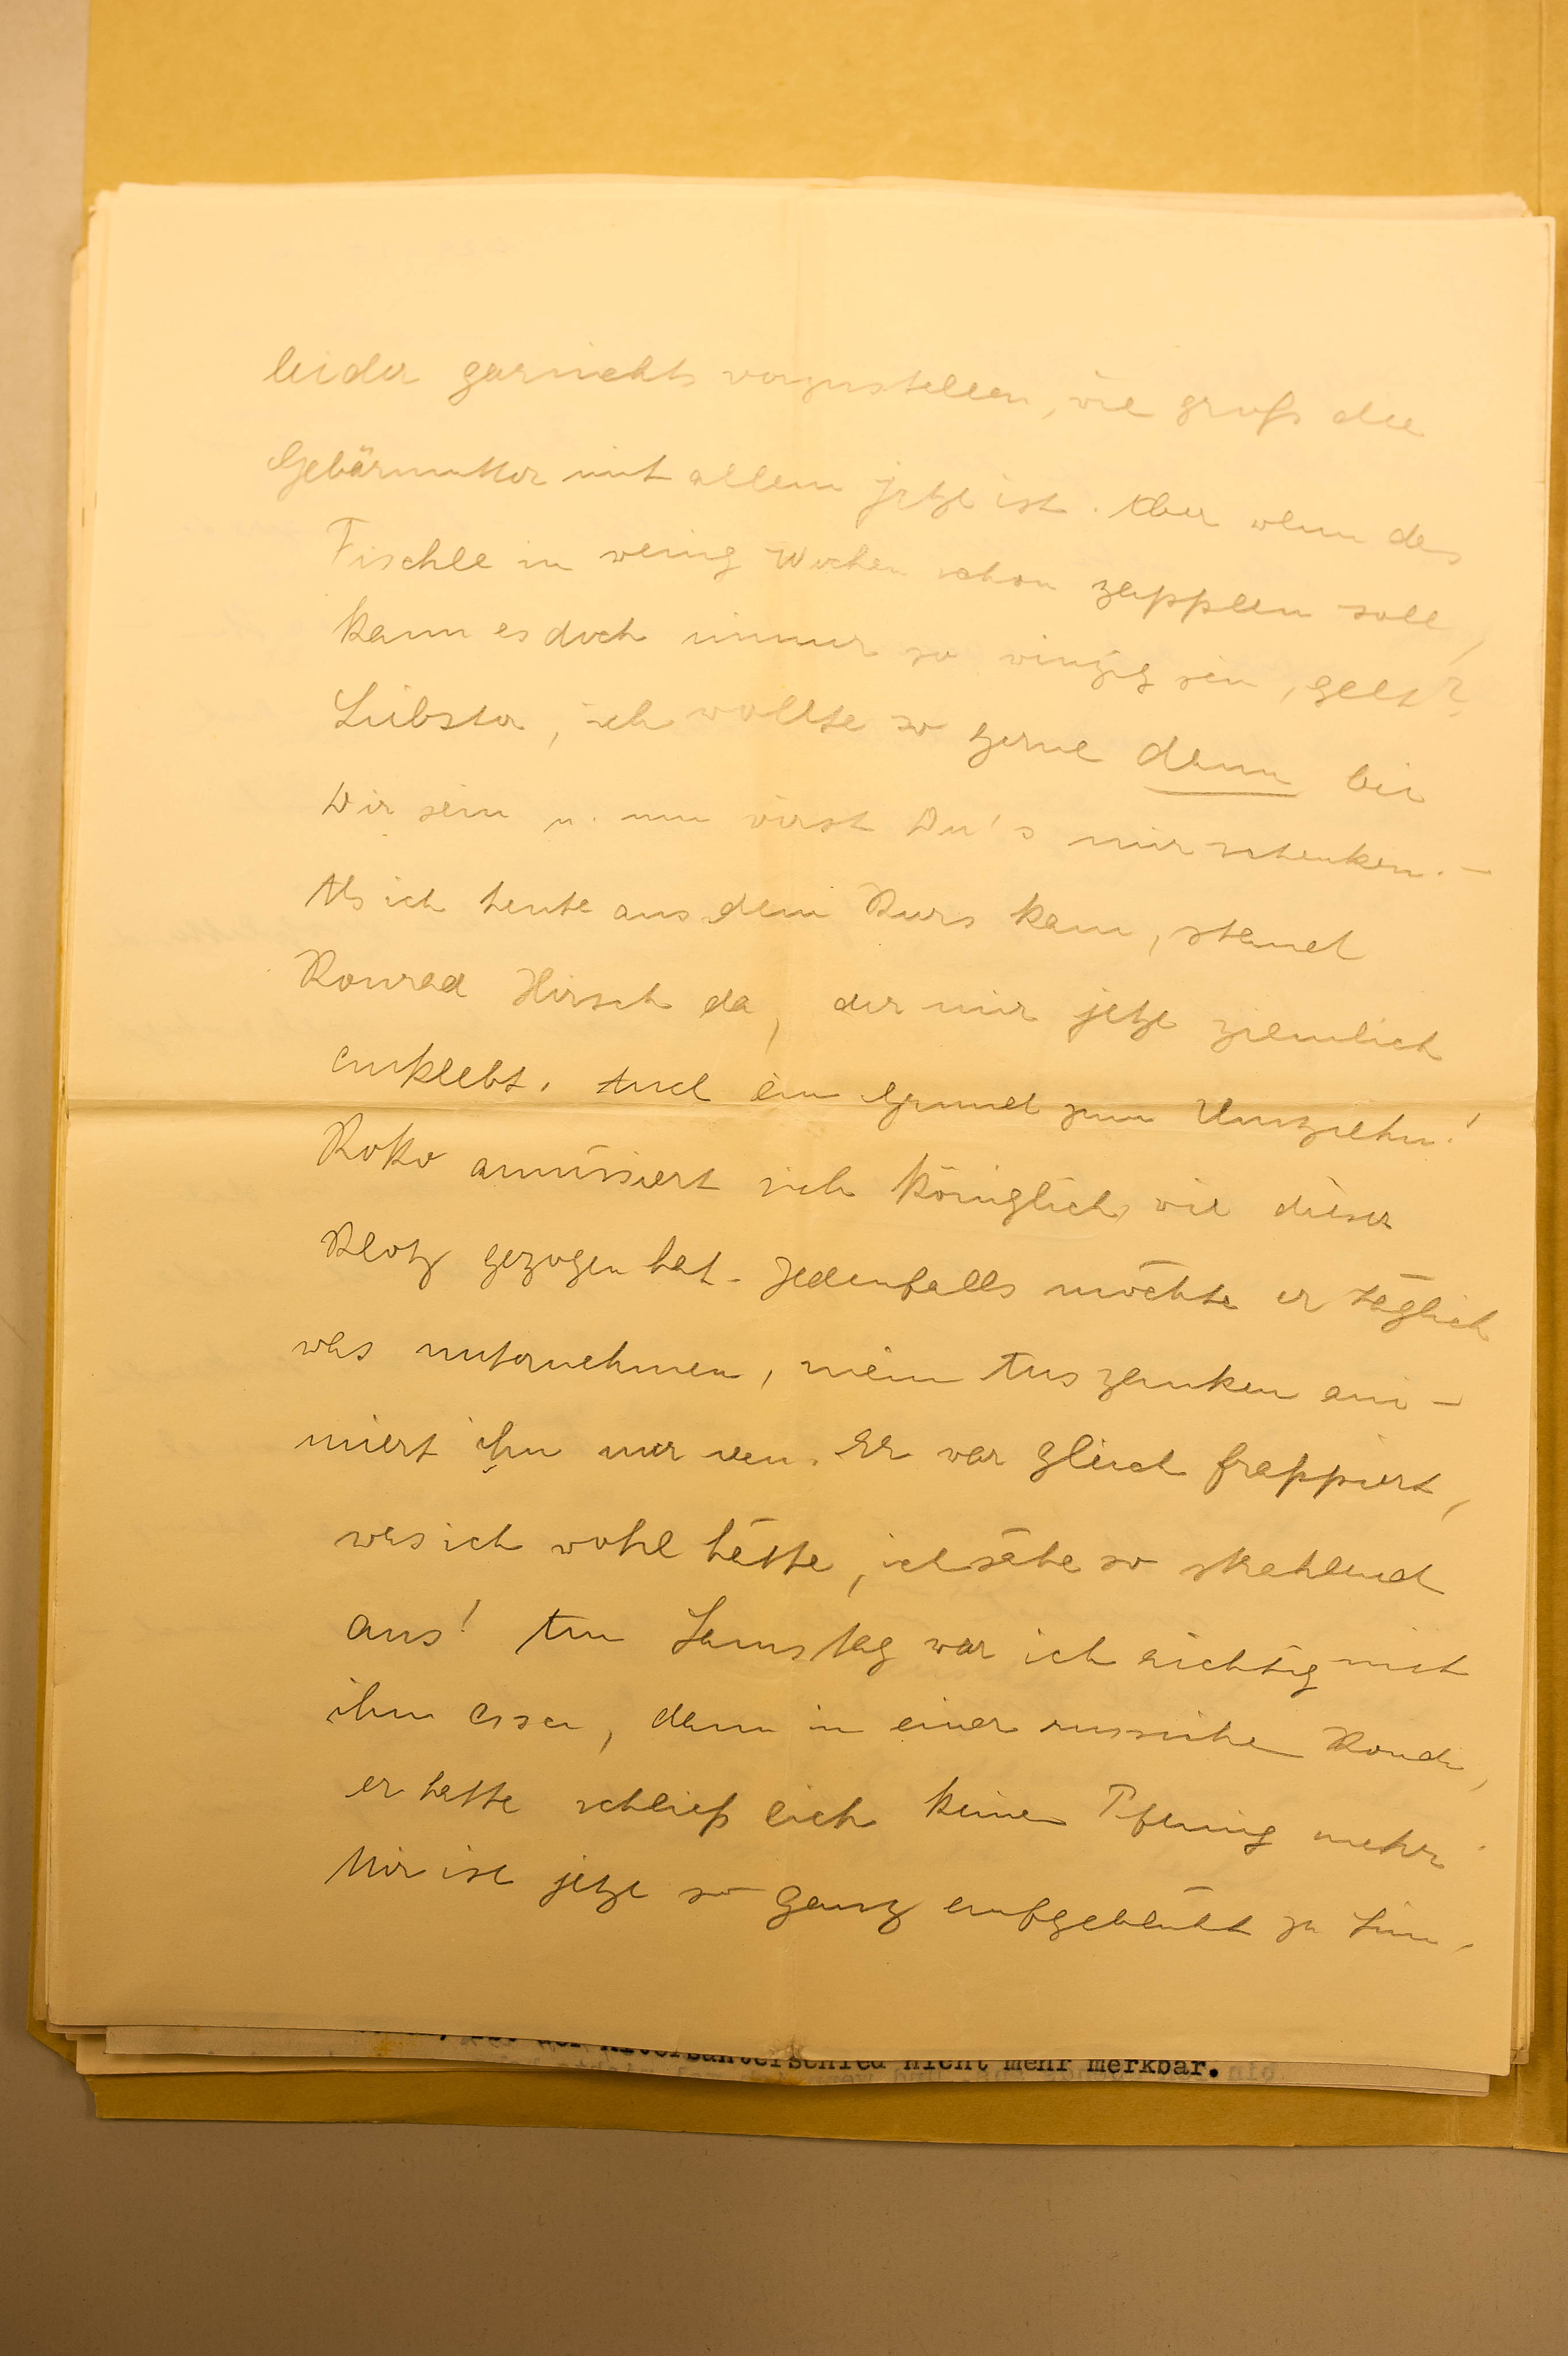 leider garnichts vorzustellen, wie groß die
Gebärmutter mit allem jetzt ist. Aber wenn das
Fischle in wenig Wochen schon zapplen soll,
kann es doch nimmer so winzig sein, gelt?
Liebster, ich wollte so gerne dann bei
Dir sein u. nun wirst Du's mir schenken. –
Als ich heute aus dem Kurs kam, stand
Konrad Hirsch da, der mir jetzt ziemlich
anklebt. Auch ein Grund zum Umziehn!
Koko amüsiert sich königlich, wie dieser
Klotz gezogen hat. Jedenfalls möchte er täglich
was unternehmen, mein Auszanken ani-
miert ihn nur neu. Er war gleich frappiert,
was ich wohl hätte, ich sähe so strahlend
aus! Am Samstag war ich richtig mit
ihm essen, dann in einer russischen Kondi,
er hatte schließlich keinen Pfennig mehr.
Mir ist jetzt so ganz aufgeblüht zu Sinn.
nicht mehr merkbar.